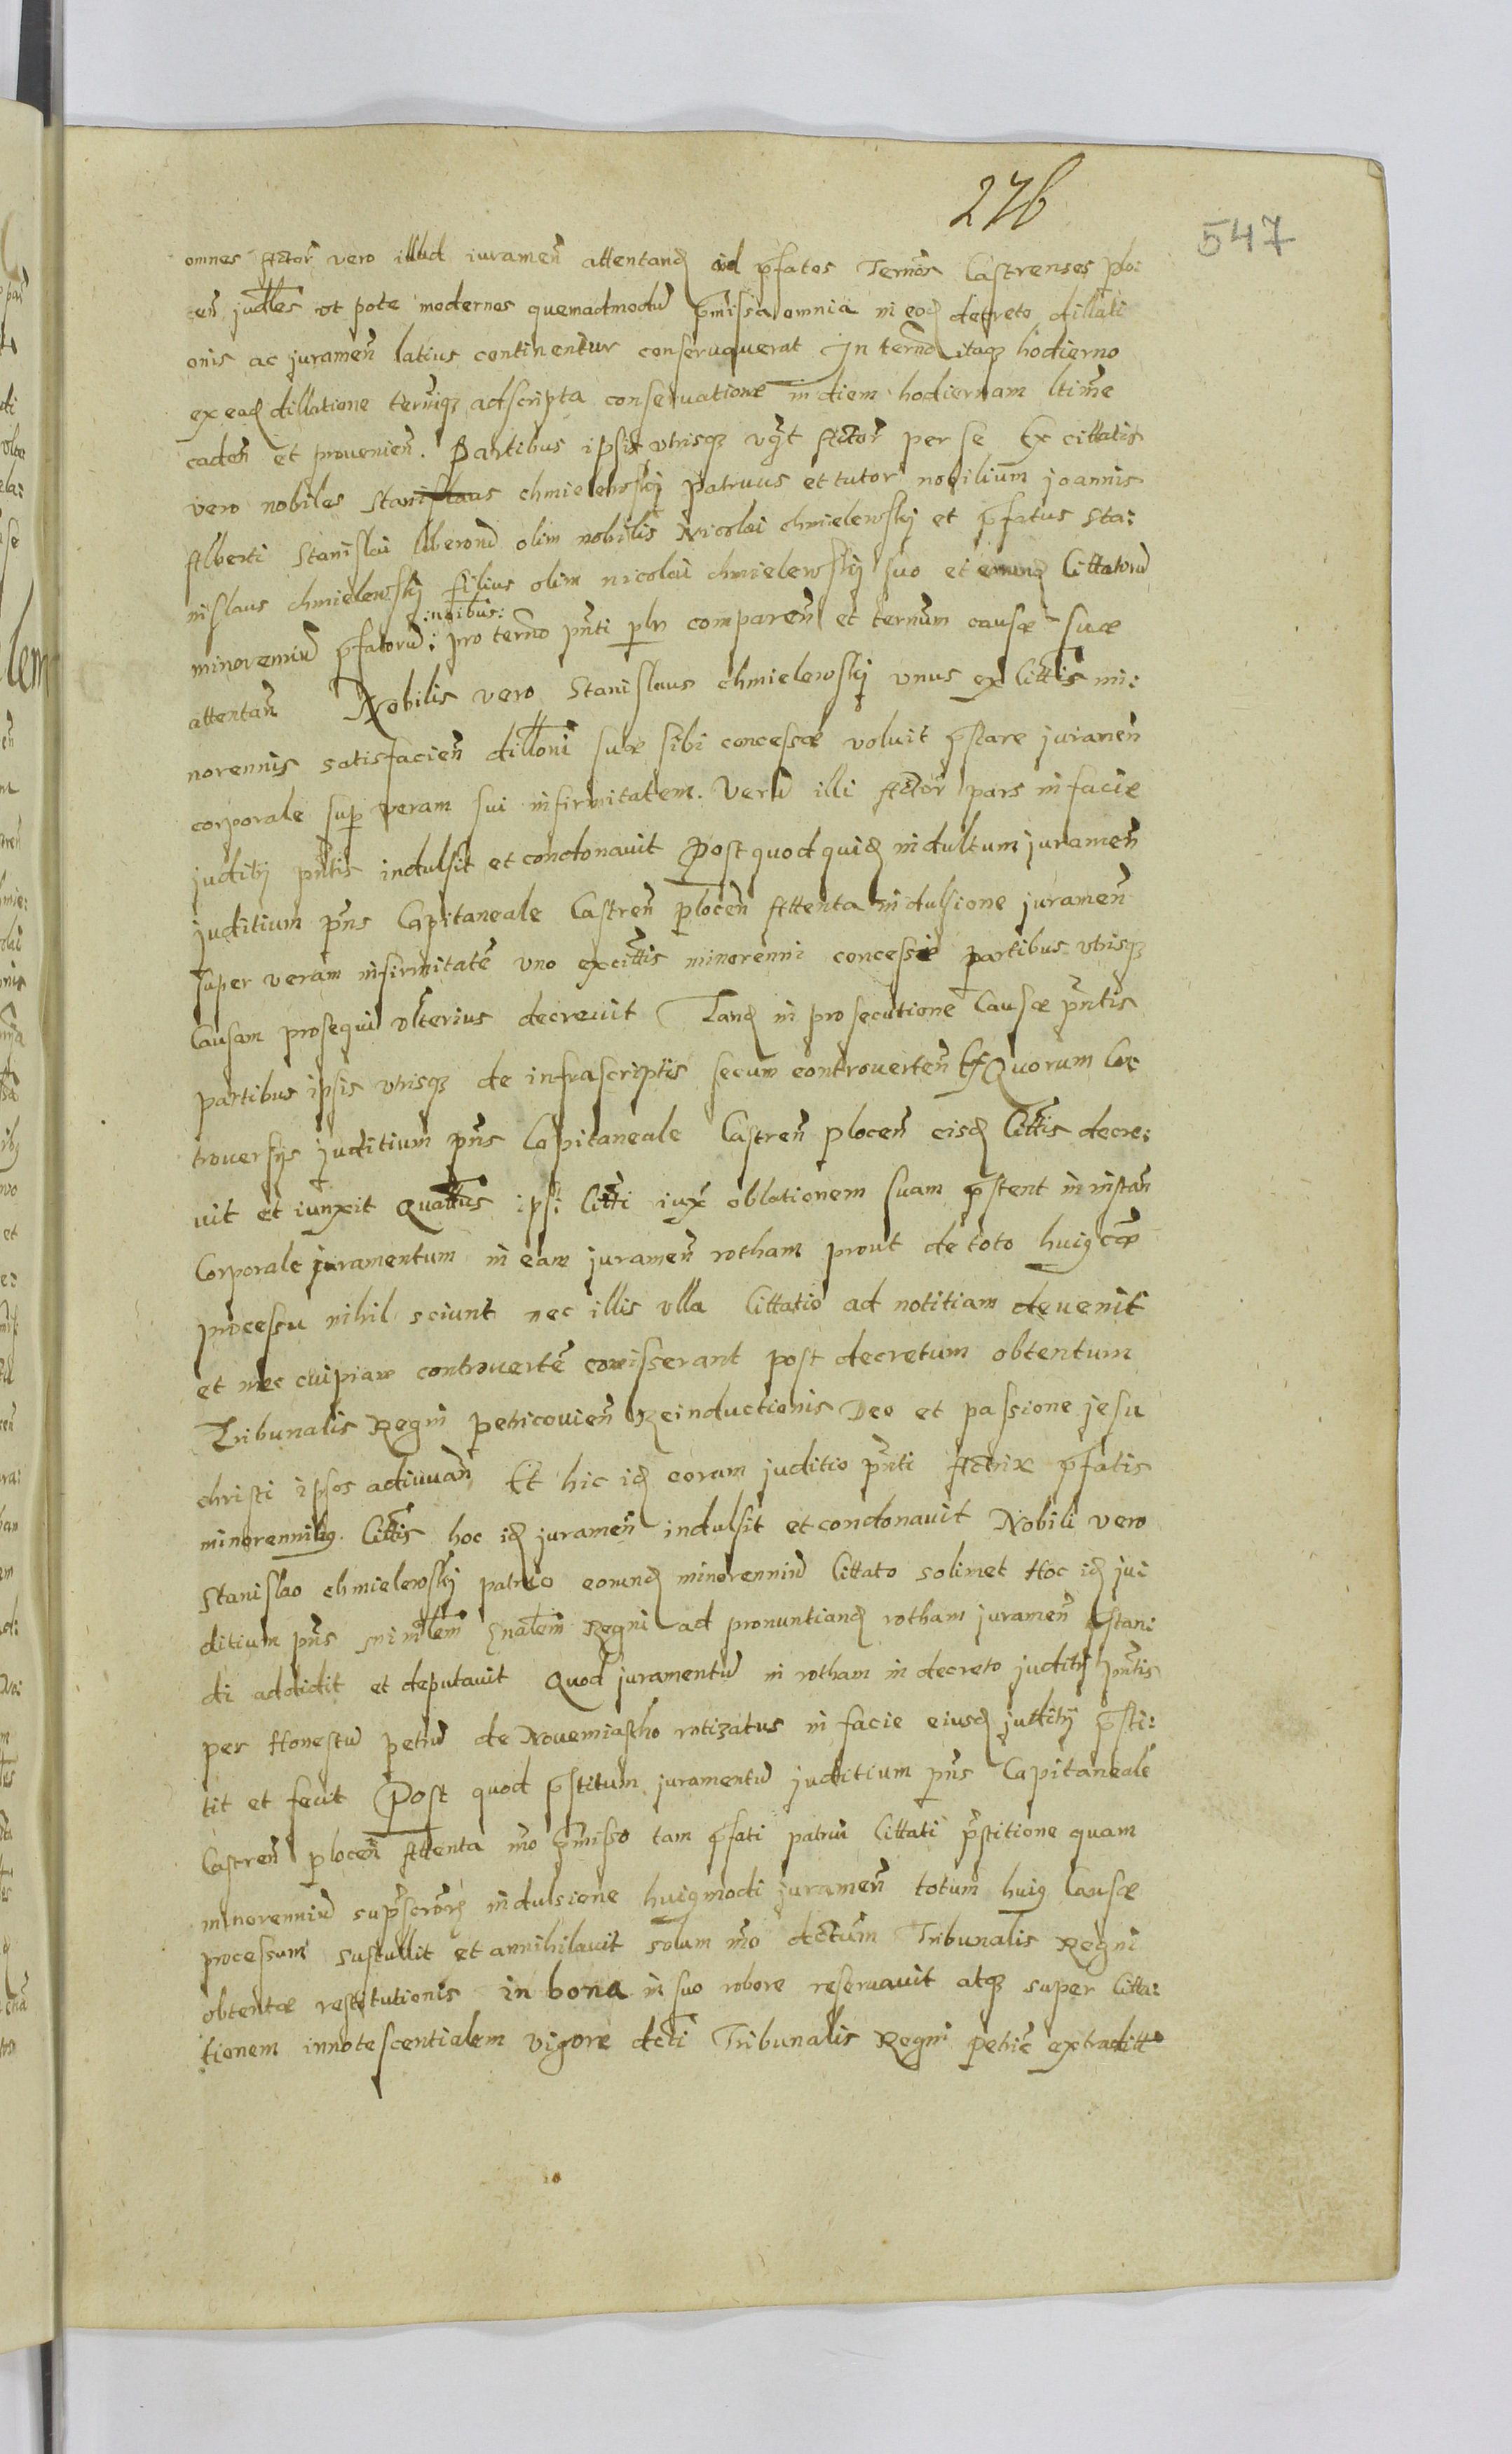 276
547
omnes Actor vero illud iuramen̄ attentand ad p̄fatos Termōs Castrenses plo:
cen̄ judles ut pote modernos quemadmodū p̄missa omnia in eod decreto dillati
onis ac juramen̄ latius continentur conseruauerat In termō itaq hodierno
ex ead dillatione termiq adscripta conseruatione in diem hodiernam ltime
caden̄ et prouenien̄. Partibus ipsis vtrisq vȳt Actor per se Ex cittatis
vero nobiles Stanislaus chmielewskj Patruus et tutor nobilium joannis
Alberti Stanislai liberorū olim nobilis Nicolai chmielewskj et p̄fatus Sta:
nislaus chmielewskj filius olim nicolai chmielewskj suo et eorund Cittatorū
:noibus:
minorenniū p̄fatorū: pro termō pn̄ti plr comparen̄ et termum causæ suæ
attentan̄ Nobilis vero Stanislaus chmielewskj vnus ex Cittis mi:
norennis satisfacien̄ dilloni suæ sibi concessæ voluit p̄stare juramen̄
corporale sup veram sui infirmitatem. Verū illi Actor pars in facie
juditij pn̄tis indulsit et condonauit Post quod quid indultum juramen̄
juditium pn̄s Capitaneale Castren̄ plocen̄ Attenta indulsione juramen̄
super veram infirmitatē vno ex cittis minorenni concesse partibus vtrisq
Causam prosequi vlterius decreuit Tand in prosecutione Causæ pn̄tis
partibus ipsis vtrisq de infrascriptis secum controuerten̄ Ex Quorum Co:
trouersijs juditium pn̄s Capitaneale Castren̄ plocen̄ eisd Cittis decre:
uit et iunxit Quattus ipsi Citti iux oblationem suam p̄stent in instan̄
Corporale juramentum in eam juramen̄ rotham prout de toto huiq cæ
processu nihil sciunt nec illis vlla Cittatio ad notitiam deuenit
et nec cuipiam controuertē comisserant post decretum obtentum
Tribunalis Regni petricouien̄ Reinductionis Deo et passione jesu
christi ipsos adiuuan̄ Et hic id coram juditio pn̄ti Actrix p̄fatis
minorennibq Cittis hoc id juramen̄ indulsit et condonauit Nobili vero
Stanislao chmielewskj patruo eorund minorenniū Cittato solimet Hoc id ju
ditium pn̄s mi͠nlem Gnalem Regni ad pronuntiand rotham juramen̄ p̄stan:
di addidit et deputauit Quod juramentū in rotham in decreto juditij pn̄tis
per Honestū petrū de Nouemiastho rotizatus in facie eiusd juditij p̄sti:
tit et fecit Post quod p̄stitum juramentū juditium pn̄s Capitaneale
Castren̄ plocen̄ Attenta mō p̄misso tam p̄fati patrui Cittati p̄stitione quam
minorenniū sup̄scrōrū indulsione huiqmodi juramen̄ totum huiq Causæ
processum sustullit et annihilauit solum mō dctum Tribunalis Regni
obtentæ restitutionis in bona in suo robore reseruauit atq super Citta:
tionem innotescentialem vigore dcti Tribunalis Regni petric̄ extraditt